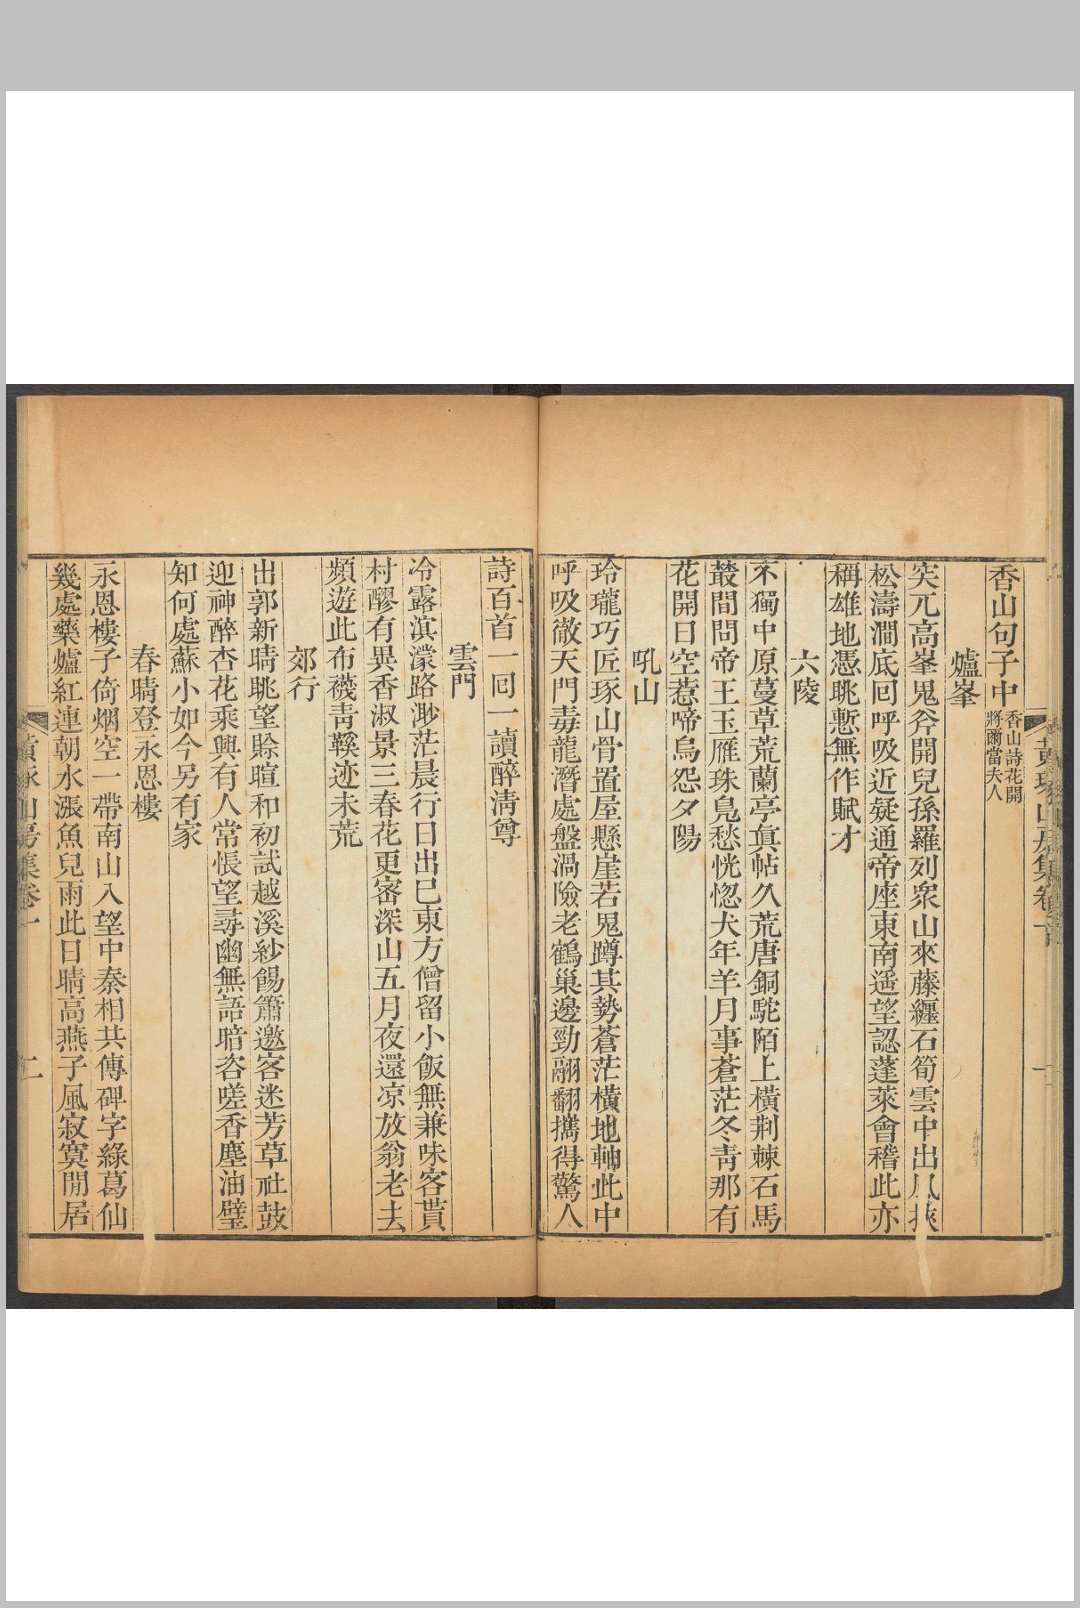 香山句子中香山詩花開
將爾當夫人
爐峯
突兀高峯鬼斧開兒孫羅列衆山來藤纏石筍雲中出風挾
松濤澗底回呼吸近疑通帝座東南遥望認蓬萊會稽此亦
稱雄地憑眺慙無作賦才
六陵
不獨中原蔓草荒蘭亭眞帖久荒唐銅駝陌上橫荆棘石馬
叢間問帝王玉雁珠鳧愁恍惚犬年羊月事蒼茫冬靑那有
花開日空惹啼烏怨夕陽
吼山
玲瓏巧匠琢山骨置屋懸崖若鬼蹲其勢蒼茫橫地軸此中
呼吸徹天門毒龍潛處盤渦險老鶴巢邊勁翮翻攜得驚人
詩百首一回一讀醉淸尊
雲門
冷露溟濛路渺茫晨行日出已東方僧留小飯無兼味客貰
村醪有異香淑景三春花更密深山五月夜還凉放翁老去
頻遊此布襪靑鞵迹未荒
郊行
出郭新晴眺望賒暄和初試越溪紗餳簫邀客迷芳草社鼓
迎神醉杏花乘興有人常悵望尋幽無語暗咨嗟香塵油璧
知何處蘇小如今另有家
春晴登永恩樓
永恩樓子倚烟空一帶南山入望中秦相共傳碑字綠葛仙
幾處藥爐紅連朝水漲魚兒雨此日晴高燕子風寂寞閒居